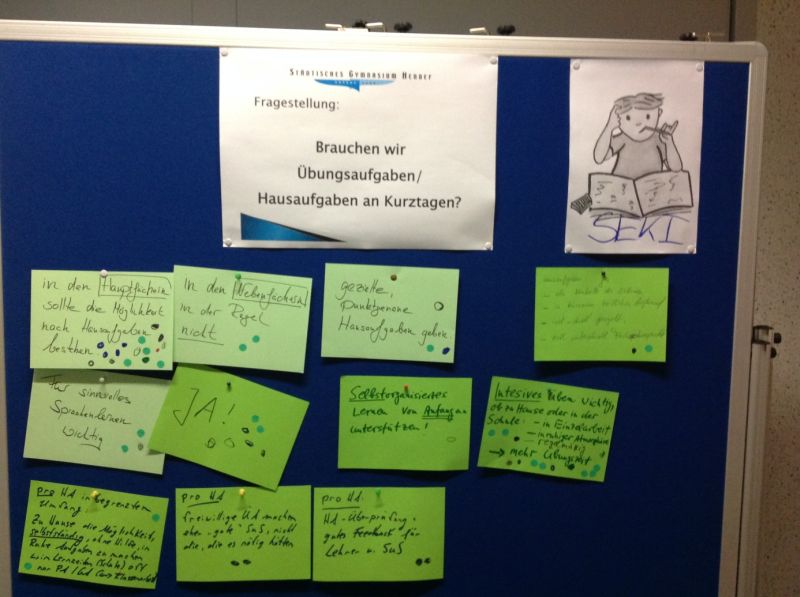 STÄDTISCHES GYMNASIUM HERDER
Fragestellung:
Brauchen wir
Übungsaufgaben/
Hausaufgaben an Kurztagen?
SEKI
in den Hauptfächern
sollte die Möglichkeit
nach Hausaufgaben
bestehen
in den Nebenfächern
in der Regel
nicht
gezielte,
punktgenaue
Hausaufgaben geben.
Für sinnvolles
Sprachenlernen
wichtig
JA!
Selbstorganisiertes
Lernen von Anfang an
unterstützen!
Intesives üben wichtig,
ob zu Hause oder in der
Schule: – in Einzelarbeit
– in ruhiger Atmosphäre
– regelmäßig
→ mehr Übungszeit
pro HA in begrenztem
Umfang
Zu Hause die Möglichkeit,
selbstständig, ohne Hilfe, in
Ruhe Aufgaben zu machen
pro HA
freiwillige HA machen
eher "gute" SuS, nicht
die, die es nötig hätten
pro HA:
HA-Überprüfung:
gutes Feedback für
Lehrer u. SuS